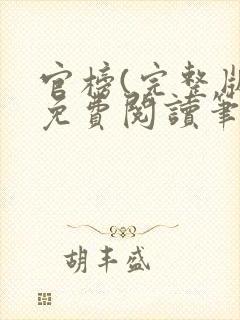 官榜(完整版
免費閱讀筆
胡丰盛